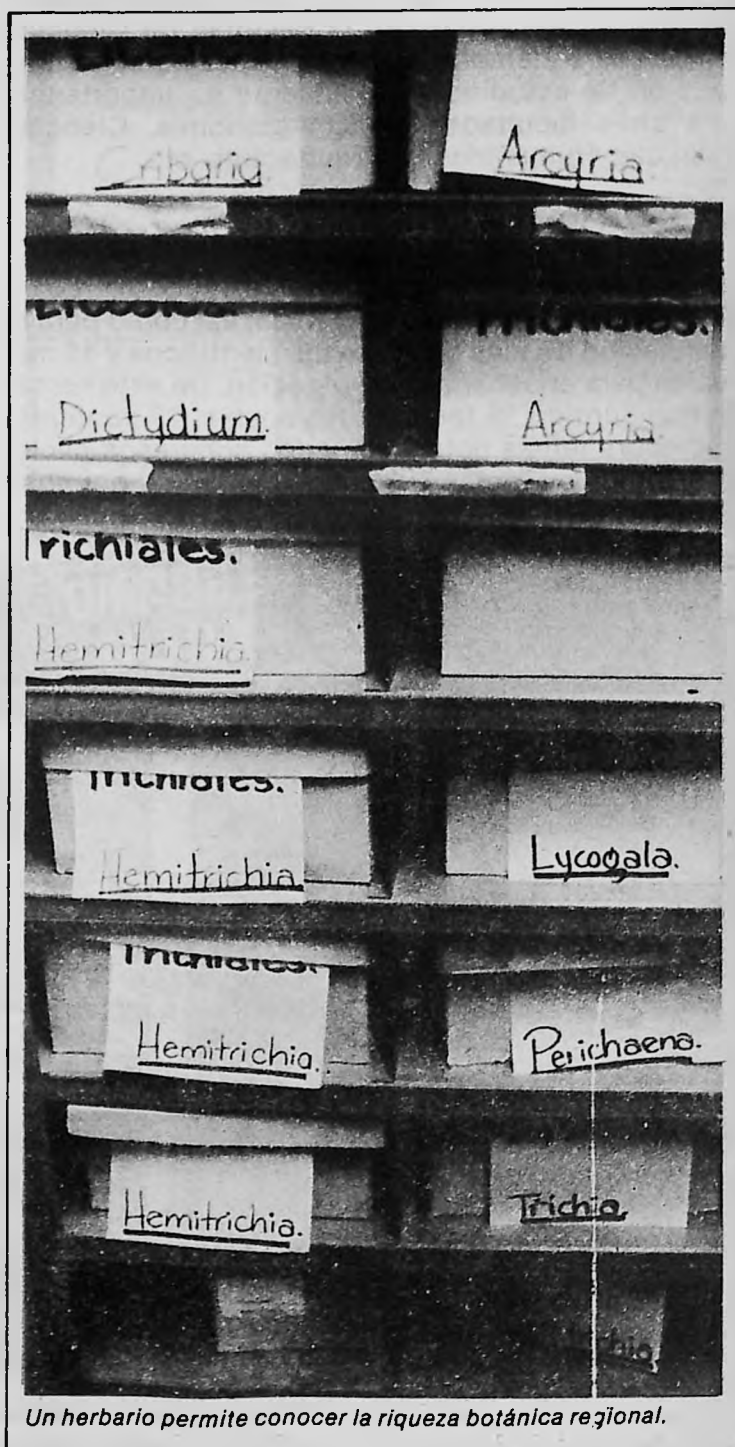 Cribaria
Arcyria
Trichiales.
Dictydium.
Arcyria.
Trichiales.
Hemitrichia.
Trichiales.
Hemitrichia
Lycogala.
Trichiales.
Hemitrichia.
Perichaena.
Hemitrichia.
Trichia.
Un herbario permite conocer la riqueza botánica regional.